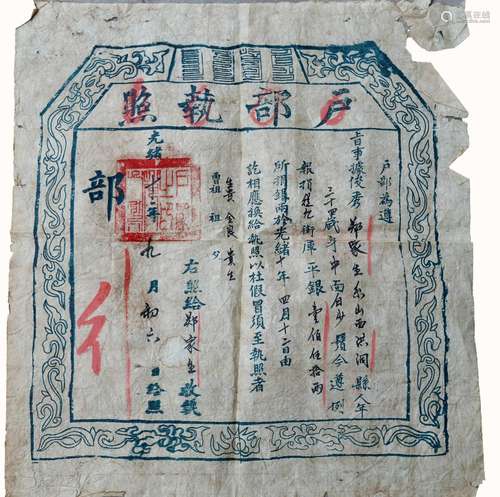 戶部執照
戶部為遵
旨事據俊秀鄭家生係山西洪洞縣人年
三十四歲身中面白少鬚今遵例
報捐從九銜庫平銀壹佰伍拾兩
所捐銀兩於光緒十年四月十二日由
訖相應換給執照以杜假冒須至執照者
曾祖 祖 父
右照給鄭家生收執
光緒十二年九月初六日給照
部
行